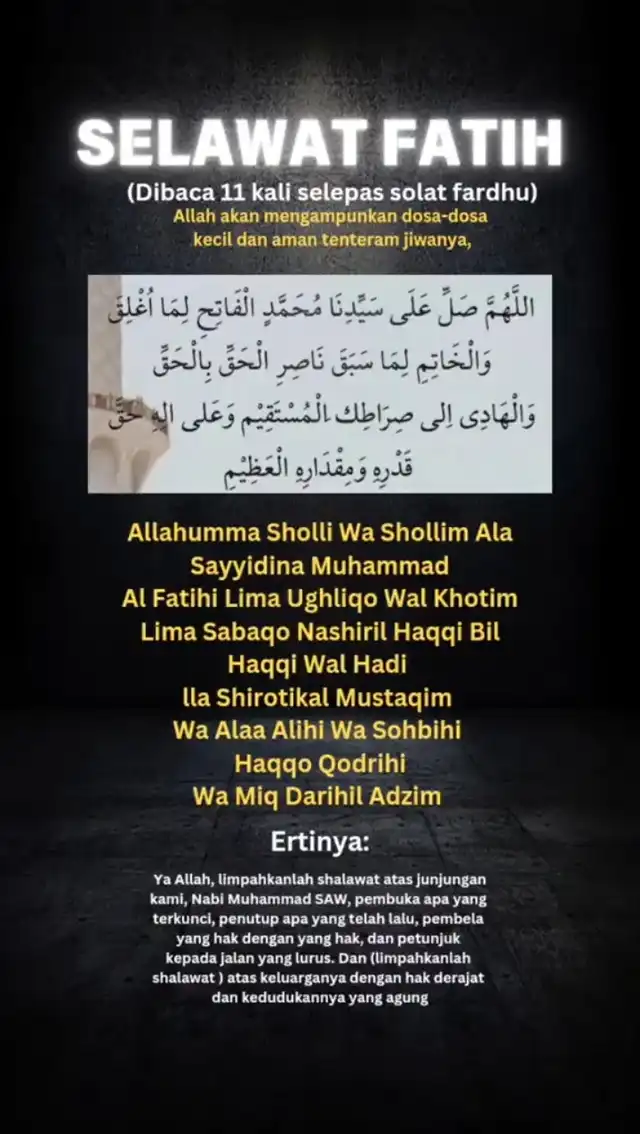 SELAWAT FATIH
(Dibaca 11 kali selepas solat fardhu)
Allah akan mengampunkan dosa-dosa
kecil dan aman tenteram jiwanya,
اللَّهُمَّ صَلِّ عَلَى سَيِّدِنَا مُحَمَّدٍ الْفَاتِحِ لِمَا اُغْلِقَ
وَالْخَاتِمِ لِمَا سَبَقَ نَاصِرِ الْحَقِّ بِالْحَقِّ
وَالْهَادِى اِلى صِرَاطِكَ الْمُسْتَقِيْمِ وَعَلى الِهِ حَقَّ
قَدْرِهِ وَمِقْدَارِهِ الْعَظِيْمِ
Allahumma Sholli Wa Shollim Ala
Sayyidina Muhammad
Al Fatihi Lima Ughliqo Wal Khotim
Lima Sabaqo Nashiril Haqqi Bil
Haqqi Wal Hadi
Ila Shirotikal Mustaqim
Wa Alaa Alihi Wa Sohbihi
Haqqo Qodrihi
Wa Miq Darihil Adzim
Ertinya:
Ya Allah, limpahkanlah shalawat atas junjungan
kami, Nabi Muhammad SAW, pembuka apa yang
terkunci, penutup apa yang telah lalu, pembela
yang hak dengan yang hak, dan petunjuk
kepada jalan yang lurus. Dan (limpahkanlah
shalawat ) atas keluarganya dengan hak derajat
dan kedudukannya yang agung